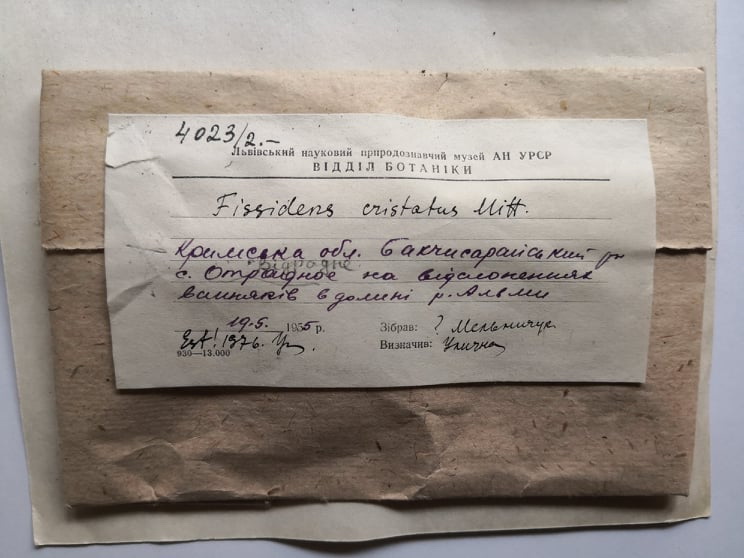 4023/2.-
Львівський науковий природознавчий музей АН УРСР
ВІДДІЛ БОТАНІКИ
Fissidens cristatus Mitt.
Кримська обл. Бакчисарайський рн
відрадне
с. Отрадное на відслоненнях
вапняків в долині р. Альми
19.5. 1955 р. Зібрав: ? Мельничук
Est! 1976. Визначив: Улична
930—13.000